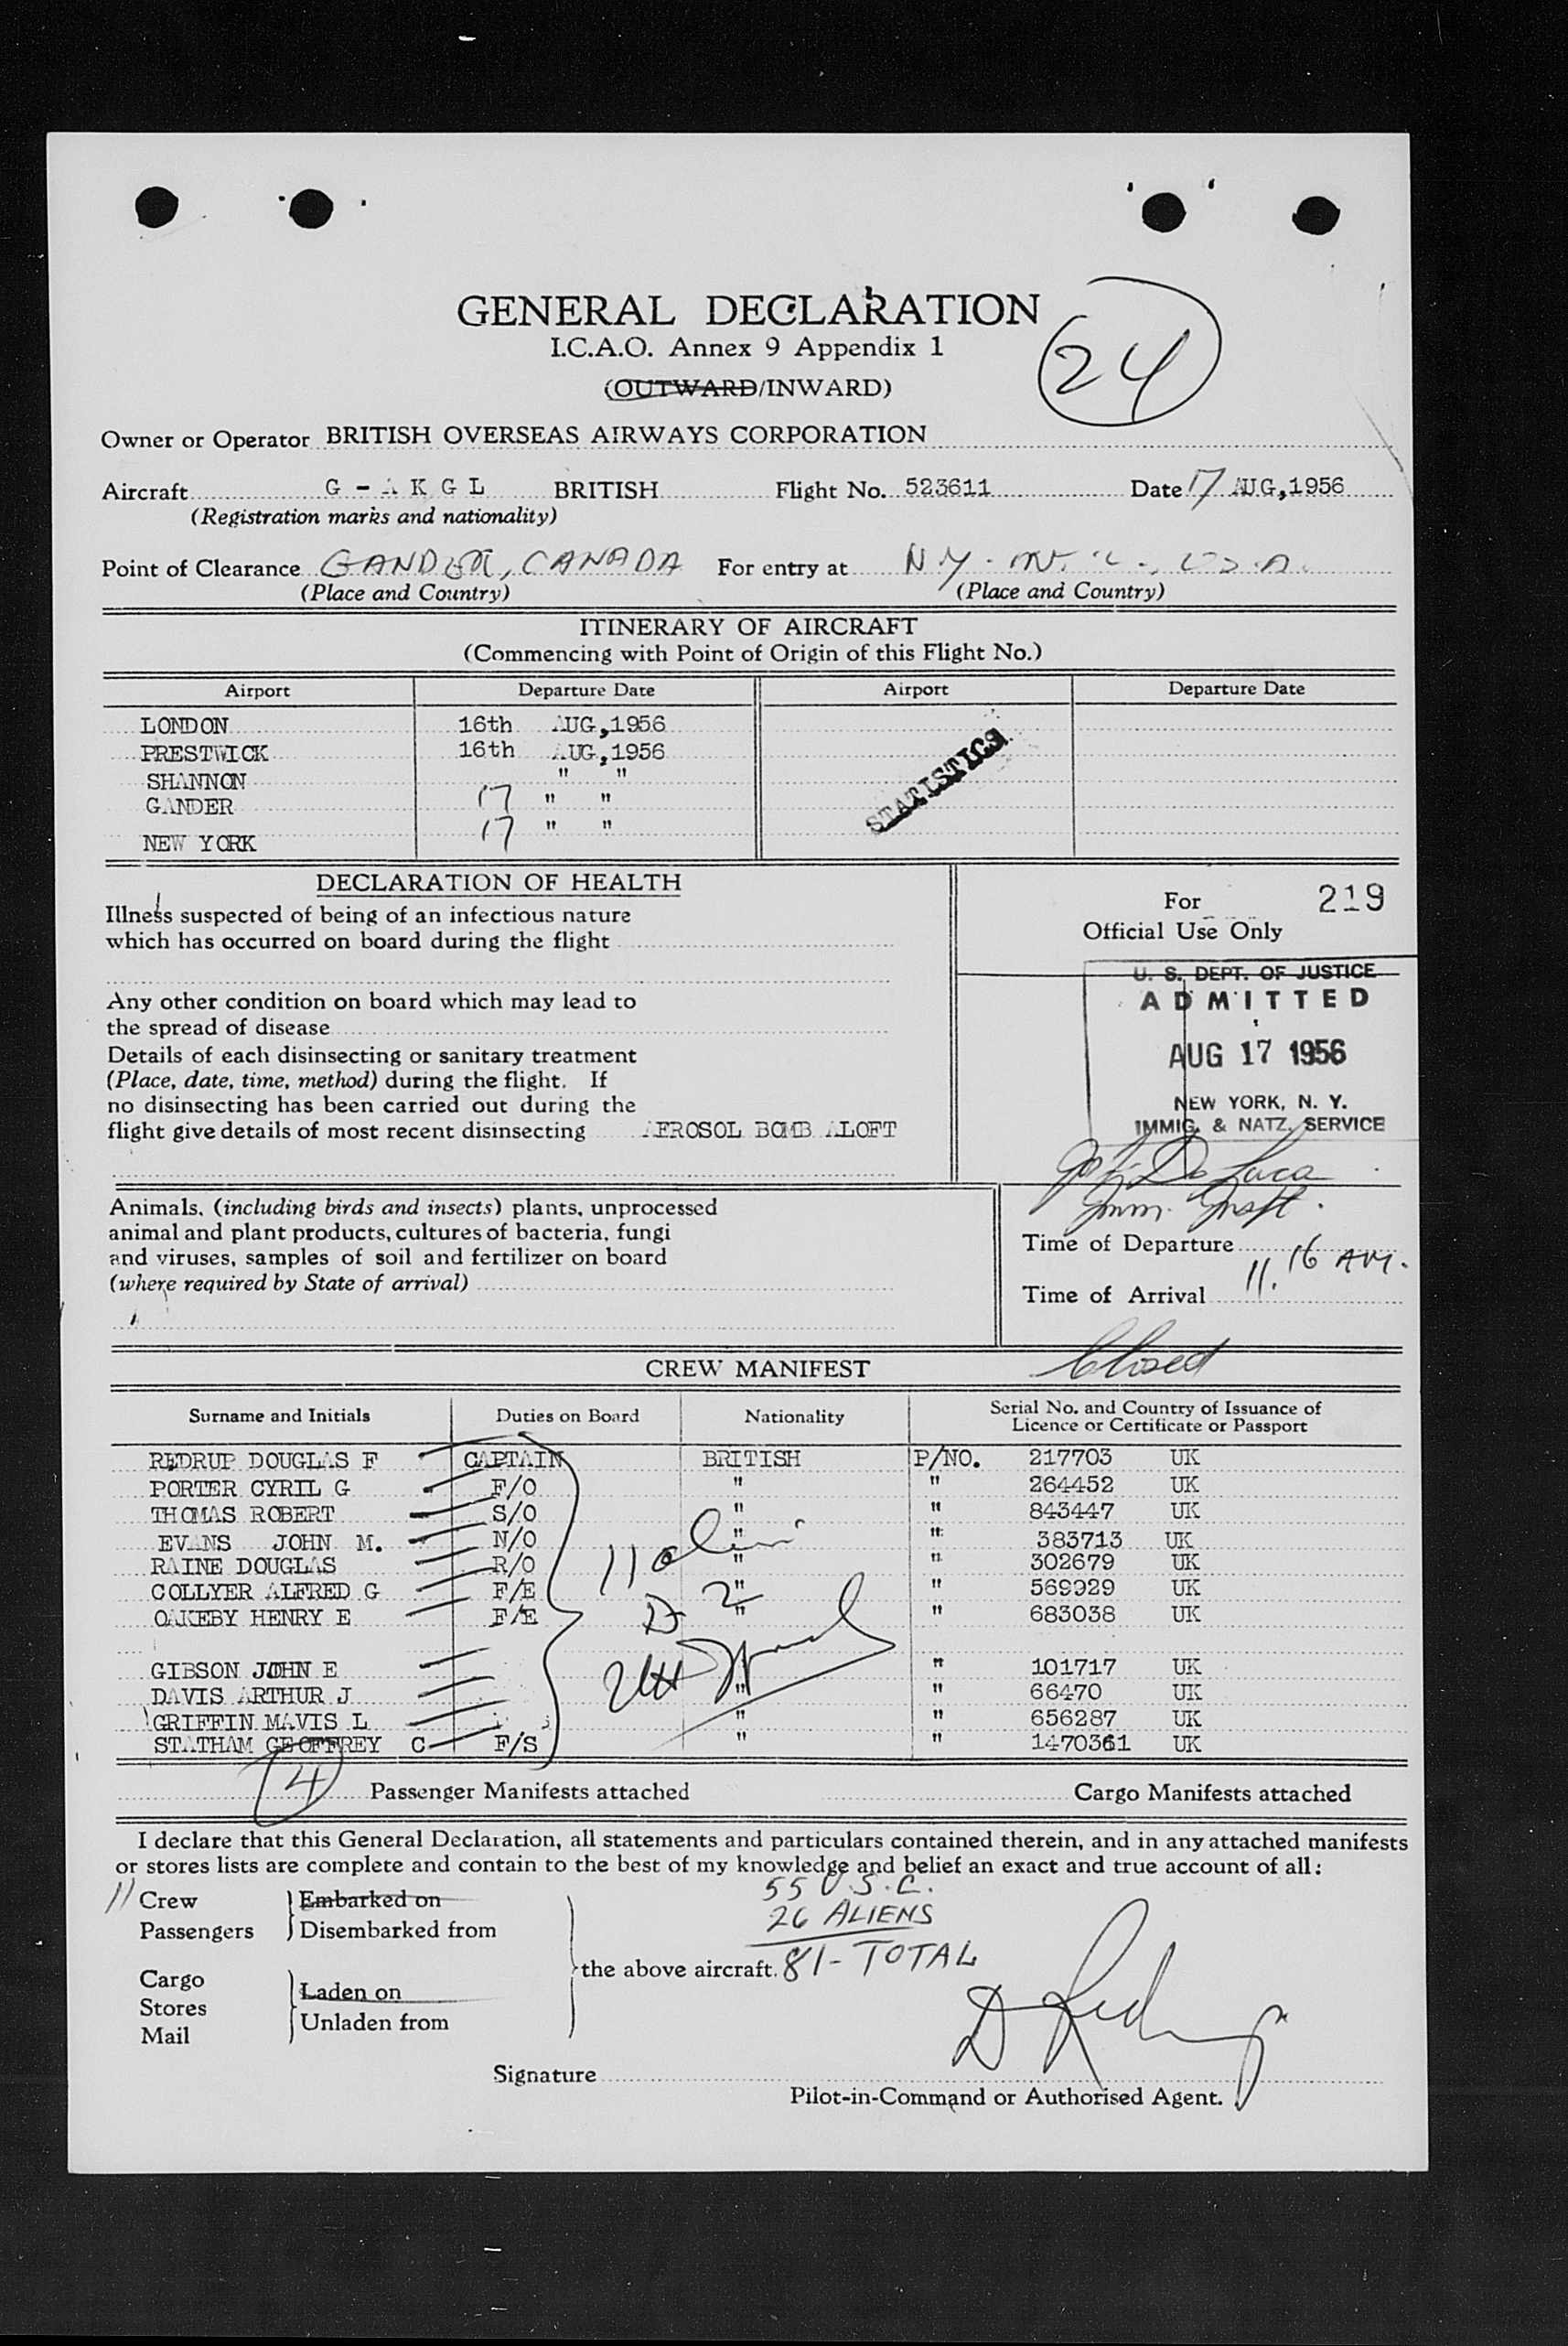 GENERAL DECLARATION
I.C.A.O. Annex 9 Appendix 1
24
(OUTWARD/INWARD)
Owner or Operator BRITISH OVERSEAS AIRWAYS CORPORATION
Aircraft G - A K G L BRITISH Flight No. 523611 Date 17 AUG, 1956
(Registration marks and nationality)
Point of Clearance GANDER, CANADA For entry at N.Y. INT'L., U.S.A.
(Place and Country) (Place and Country)
ITINERARY OF AIRCRAFT
(Commencing with Point of Origin of this Flight No.)
Airport Departure Date Airport Departure Date
LONDON 16th AUG,1956
PRESTWICK 16th AUG,1956
SHANNON " "
GANDER 17 " "
NEW YORK 17 " "
STATISTICS
DECLARATION OF HEALTH
Illness suspected of being of an infectious nature
which has occurred on board during the flight
Any other condition on board which may lead to
the spread of disease
Details of each disinsecting or sanitary treatment
(Place, date, time, method) during the flight. If
no disinsecting has been carried out during the
flight give details of most recent disinsecting AEROSOL BOMB ALOFT
For 219
Official Use Only
U. S. DEPT. OF JUSTICE
ADMITTED
AUG 17 1956
NEW YORK, N. Y.
IMMIG. & NATZ. SERVICE
De Luca
Imm. Inspt.
Animals, (including birds and insects) plants, unprocessed
animal and plant products, cultures of bacteria, fungi
and viruses, samples of soil and fertilizer on board
(where required by State of arrival)
Time of Departure
Time of Arrival 11.16 AM.
Closed
CREW MANIFEST
Surname and Initials Duties on Board Nationality Serial No. and Country of Issuance of
Licence or Certificate or Passport
REDRUP DOUGLAS F CAPTAIN BRITISH P/NO. 217703 UK
PORTER CYRIL G F/O " " 264452 UK
THOMAS ROBERT S/O " " 843447 UK
EVANS JOHN M. N/O " " 383713 UK
RAINE DOUGLAS R/O " " 302679 UK
COLLYER ALFRED G F/E " " 569929 UK
OAKEBY HENRY E F/E " " 683038 UK
GIBSON JOHN E " 101717 UK
DAVIS ARTHUR J " " 66470 UK
GRIFFIN MAVIS L " " 656287 UK
STATHAM GEOFFREY C F/S " " 1470361 UK
11
D 2
4 Passenger Manifests attached Cargo Manifests attached
I declare that this General Declaration, all statements and particulars contained therein, and in any attached manifests
or stores lists are complete and contain to the best of my knowledge and belief an exact and true account of all:
11 Crew Embarked on
Passengers Disembarked from
Cargo Laden on
Stores
Mail Unladen from
the above aircraft.
55 U.S.C.
26 ALIENS
81 - TOTAL
D Redrup
Signature
Pilot-in-Command or Authorised Agent.